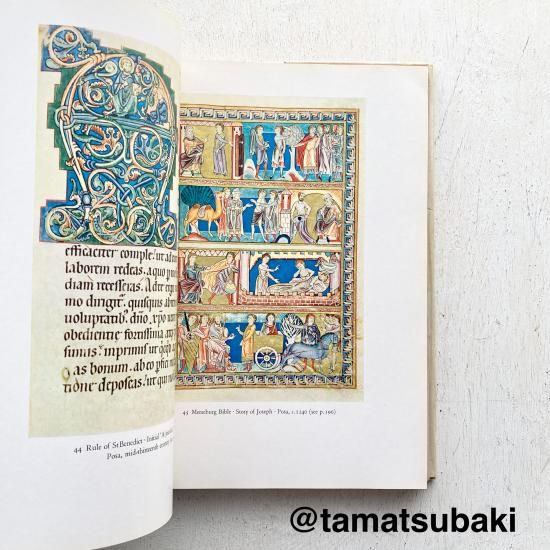 efficaciter comple: ut ad
laborem redeas. a quo p
diam recesseras. Ad te erg
mo dirigit. quisquis abr
voluptatib. dno. xpo
obedientie fortissima at
sumis. inprimis ut
as bonum. ab eo p
tione deposcas. ut qui
44 Rule of St Benedict · Initial
Posa, mid-thirteenth century
45 Merseburg Bible · Story of Joseph · Posa, c.1240 (see p.190)
@tamatsubaki